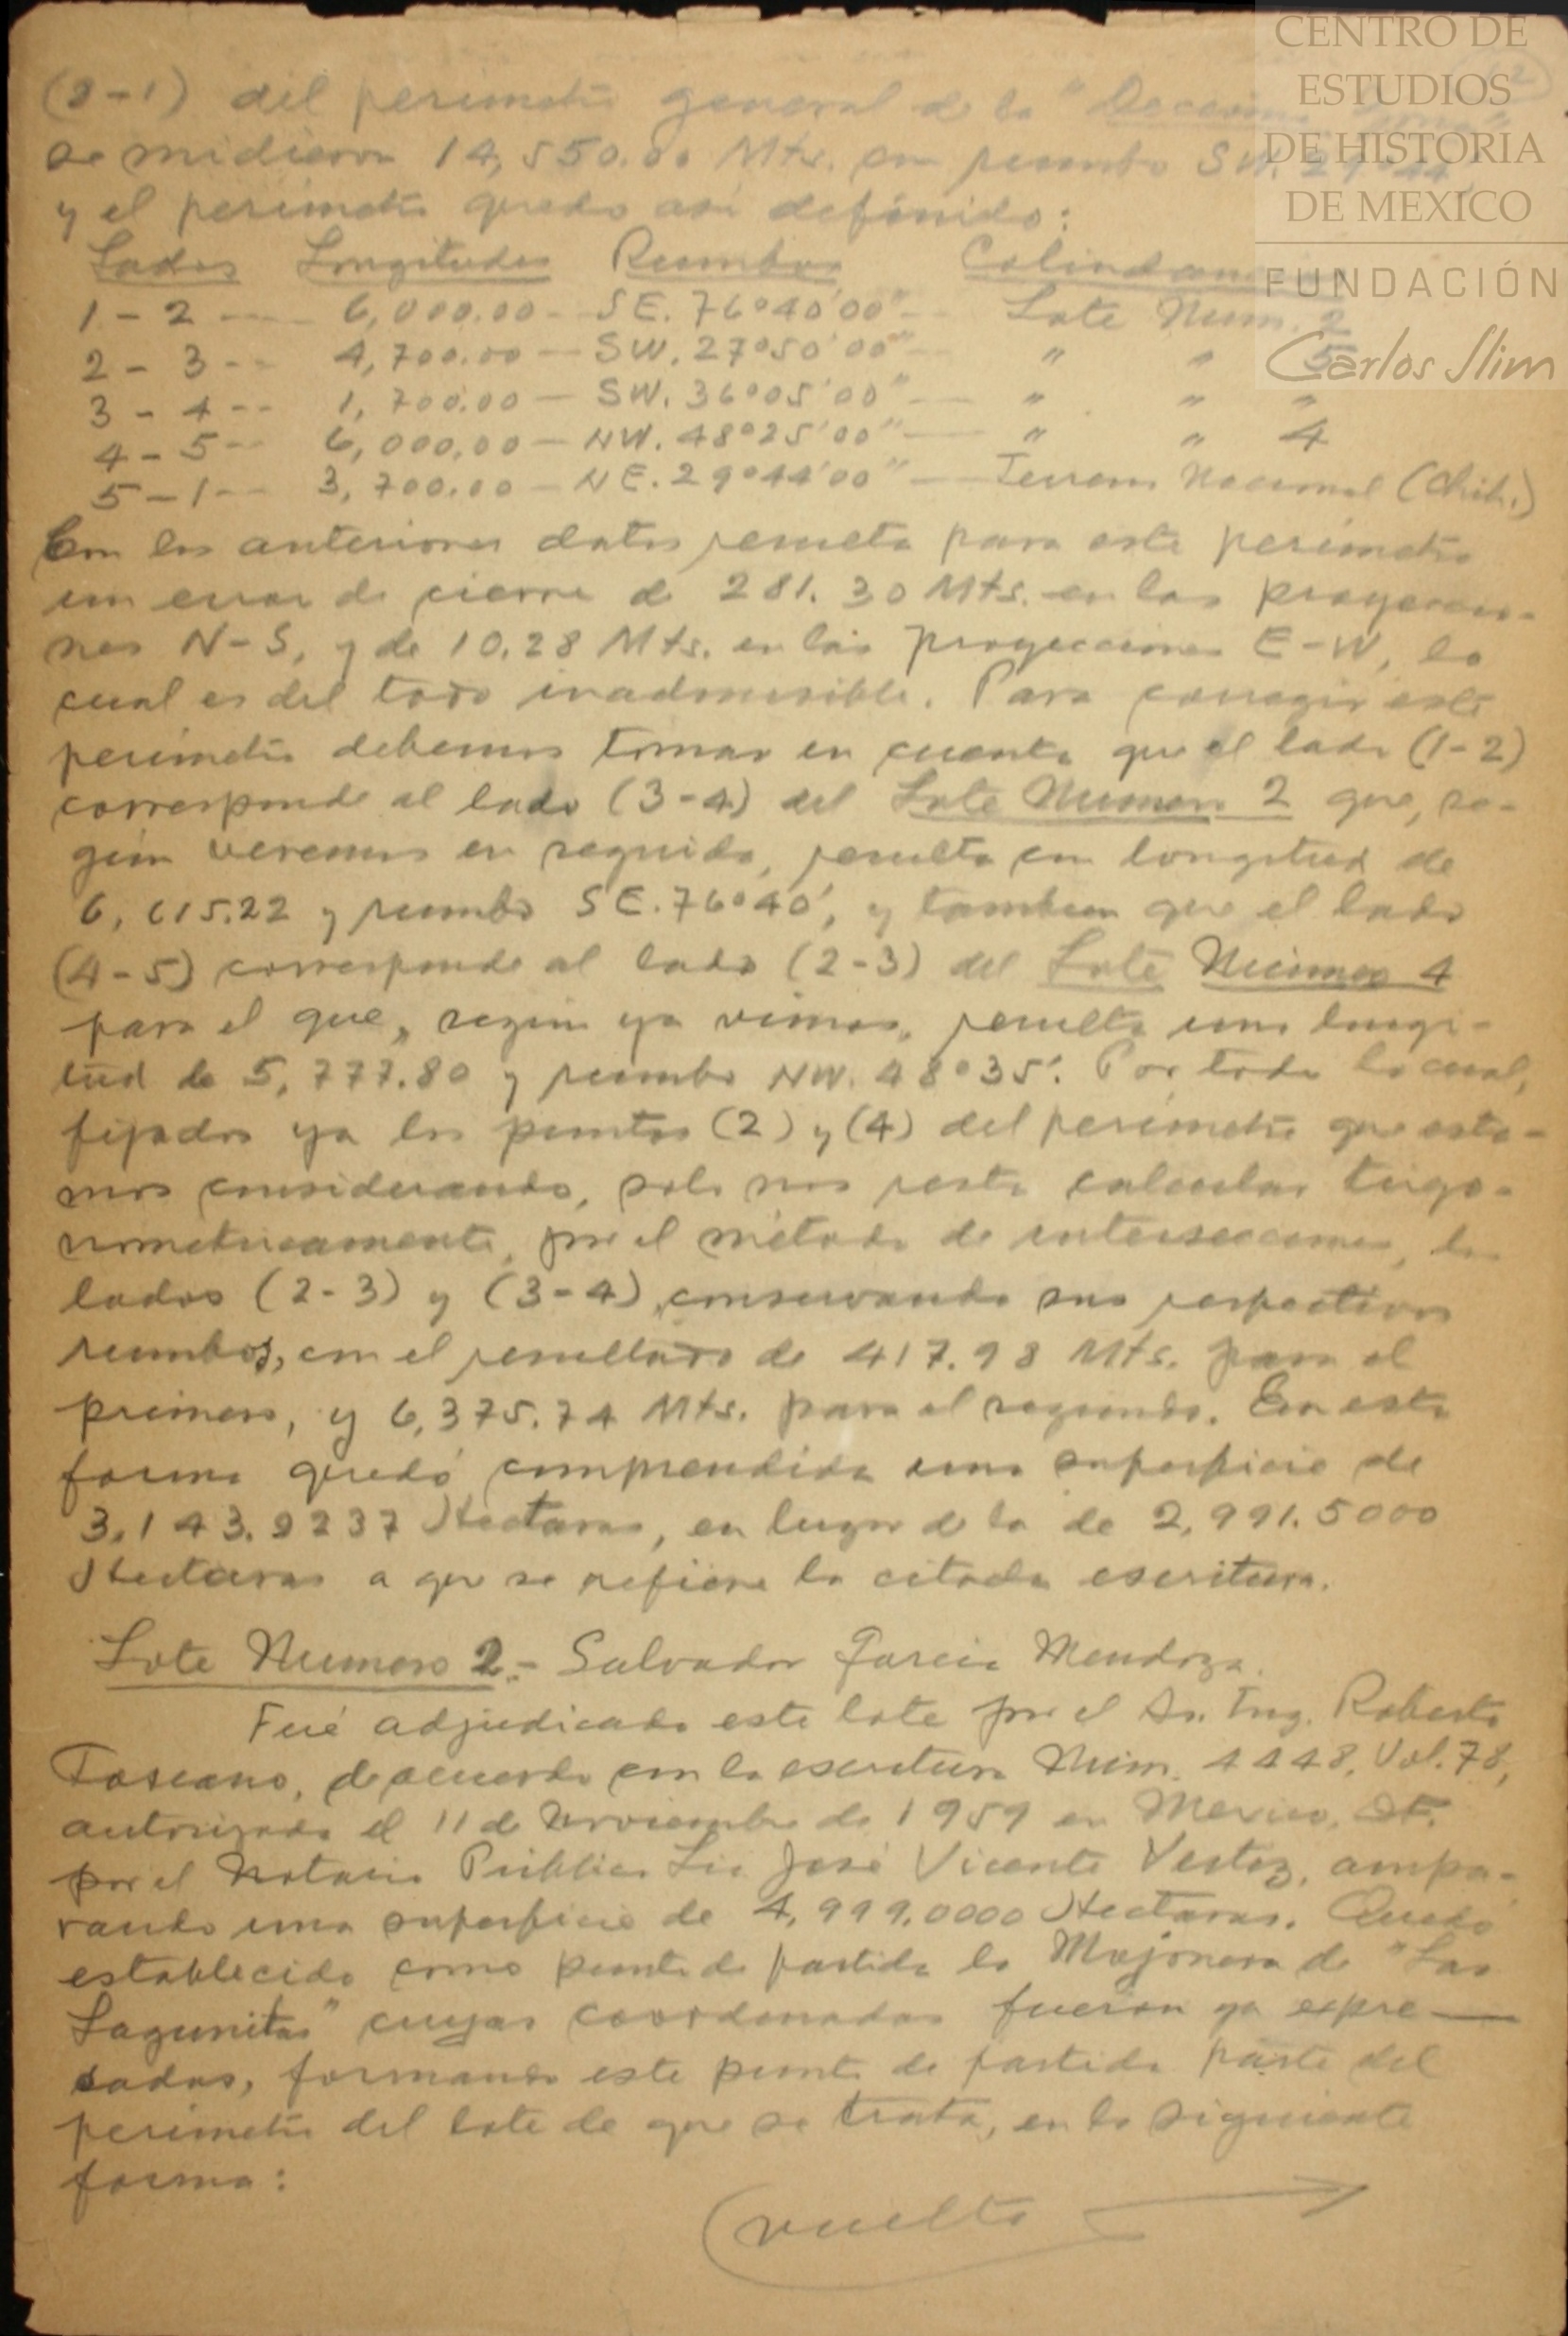 CENTRO DE
ESTUDIOS
DE HISTORIA
DE MEXICO
FUNDACIÓN
Carlos Slim
(2-1) del perimetro general de la "
se midieron 14,550.00 Mts. con rumbo SW. 29°44'
y el perimetro quedo asi definido:
Lados Longitudes Rumbos Colindancias
1-2 -- 6,000.00 - SE. 76°40'00" -- Lote Num. 2
2-3 -- 4,700.00 - SW. 27°50'00" -- " " 5
3-4 -- 1,700.00 - SW. 36°05'00" -- " " "
4-5 -- 6,000.00 - NW. 48°25'00" -- " " 4
5-1 -- 3,700.00 - NE. 29°44'00" -- Terreno Nacional (Chih.)
Con los anteriores datos resulta para este perimetro
un error de cierre de 281.30 Mts. en las proyeccio-
nes N-S, y de 10.28 Mts. en las proyecciones E-W, lo
cual es del todo inadmisible. Para corregir este
perimetro debemos tomar en cuenta que el lado (1-2)
corresponde al lado (3-4) del Lote Numero 2 que, se-
gún veremos en seguida, resulta con longitud de
6,615.22 y rumbo SE. 76°40', y tambien que el lado
(4-5) corresponde al lado (2-3) del Lote Número 4
para el que, según ya vimos, resulta una longi-
tud de 5,777.80 y rumbo NW. 48°35'. Por todo lo cual,
fijados ya los puntos (2) y (4) del perimetro que esta-
mos considerando, solo nos resta calcular trigo-
nometricamente, por el método de intersecciones, los
lados (2-3) y (3-4), conservando sus respectivos
rumbos, con el resultado de 417.98 Mts. para el
primero, y 6,375.74 Mts. para el segundo. En esta
forma quedó comprendida una superficie de
3,143.9237 Hectaras, en lugar de la de 2,991.5000
Hectaras a que se refiere la citada escritura.
Lote Numero 2.- Salvador Garcia Mendoza.
Fué adjudicado este lote por el Sr. Ing. Roberto
Toscano, de acuerdo con la escritura Núm. 4448, Vol. 78,
autorizada el 11 de Noviembre de 1959 en Mexico, DF.
por el Notario Público Lic. José Vicente, ampa-
rando una superficie de 4,999.0000 Hectaras. Quedó
establecido como punto de partida la Mojonera de "Las
Lagunitas" cuyas coordenadas fueron ya expre-
sadas, formando este punto de partida parte del
perimetro del lote de que se trata, en la siguiente
forma:
(vuelta →